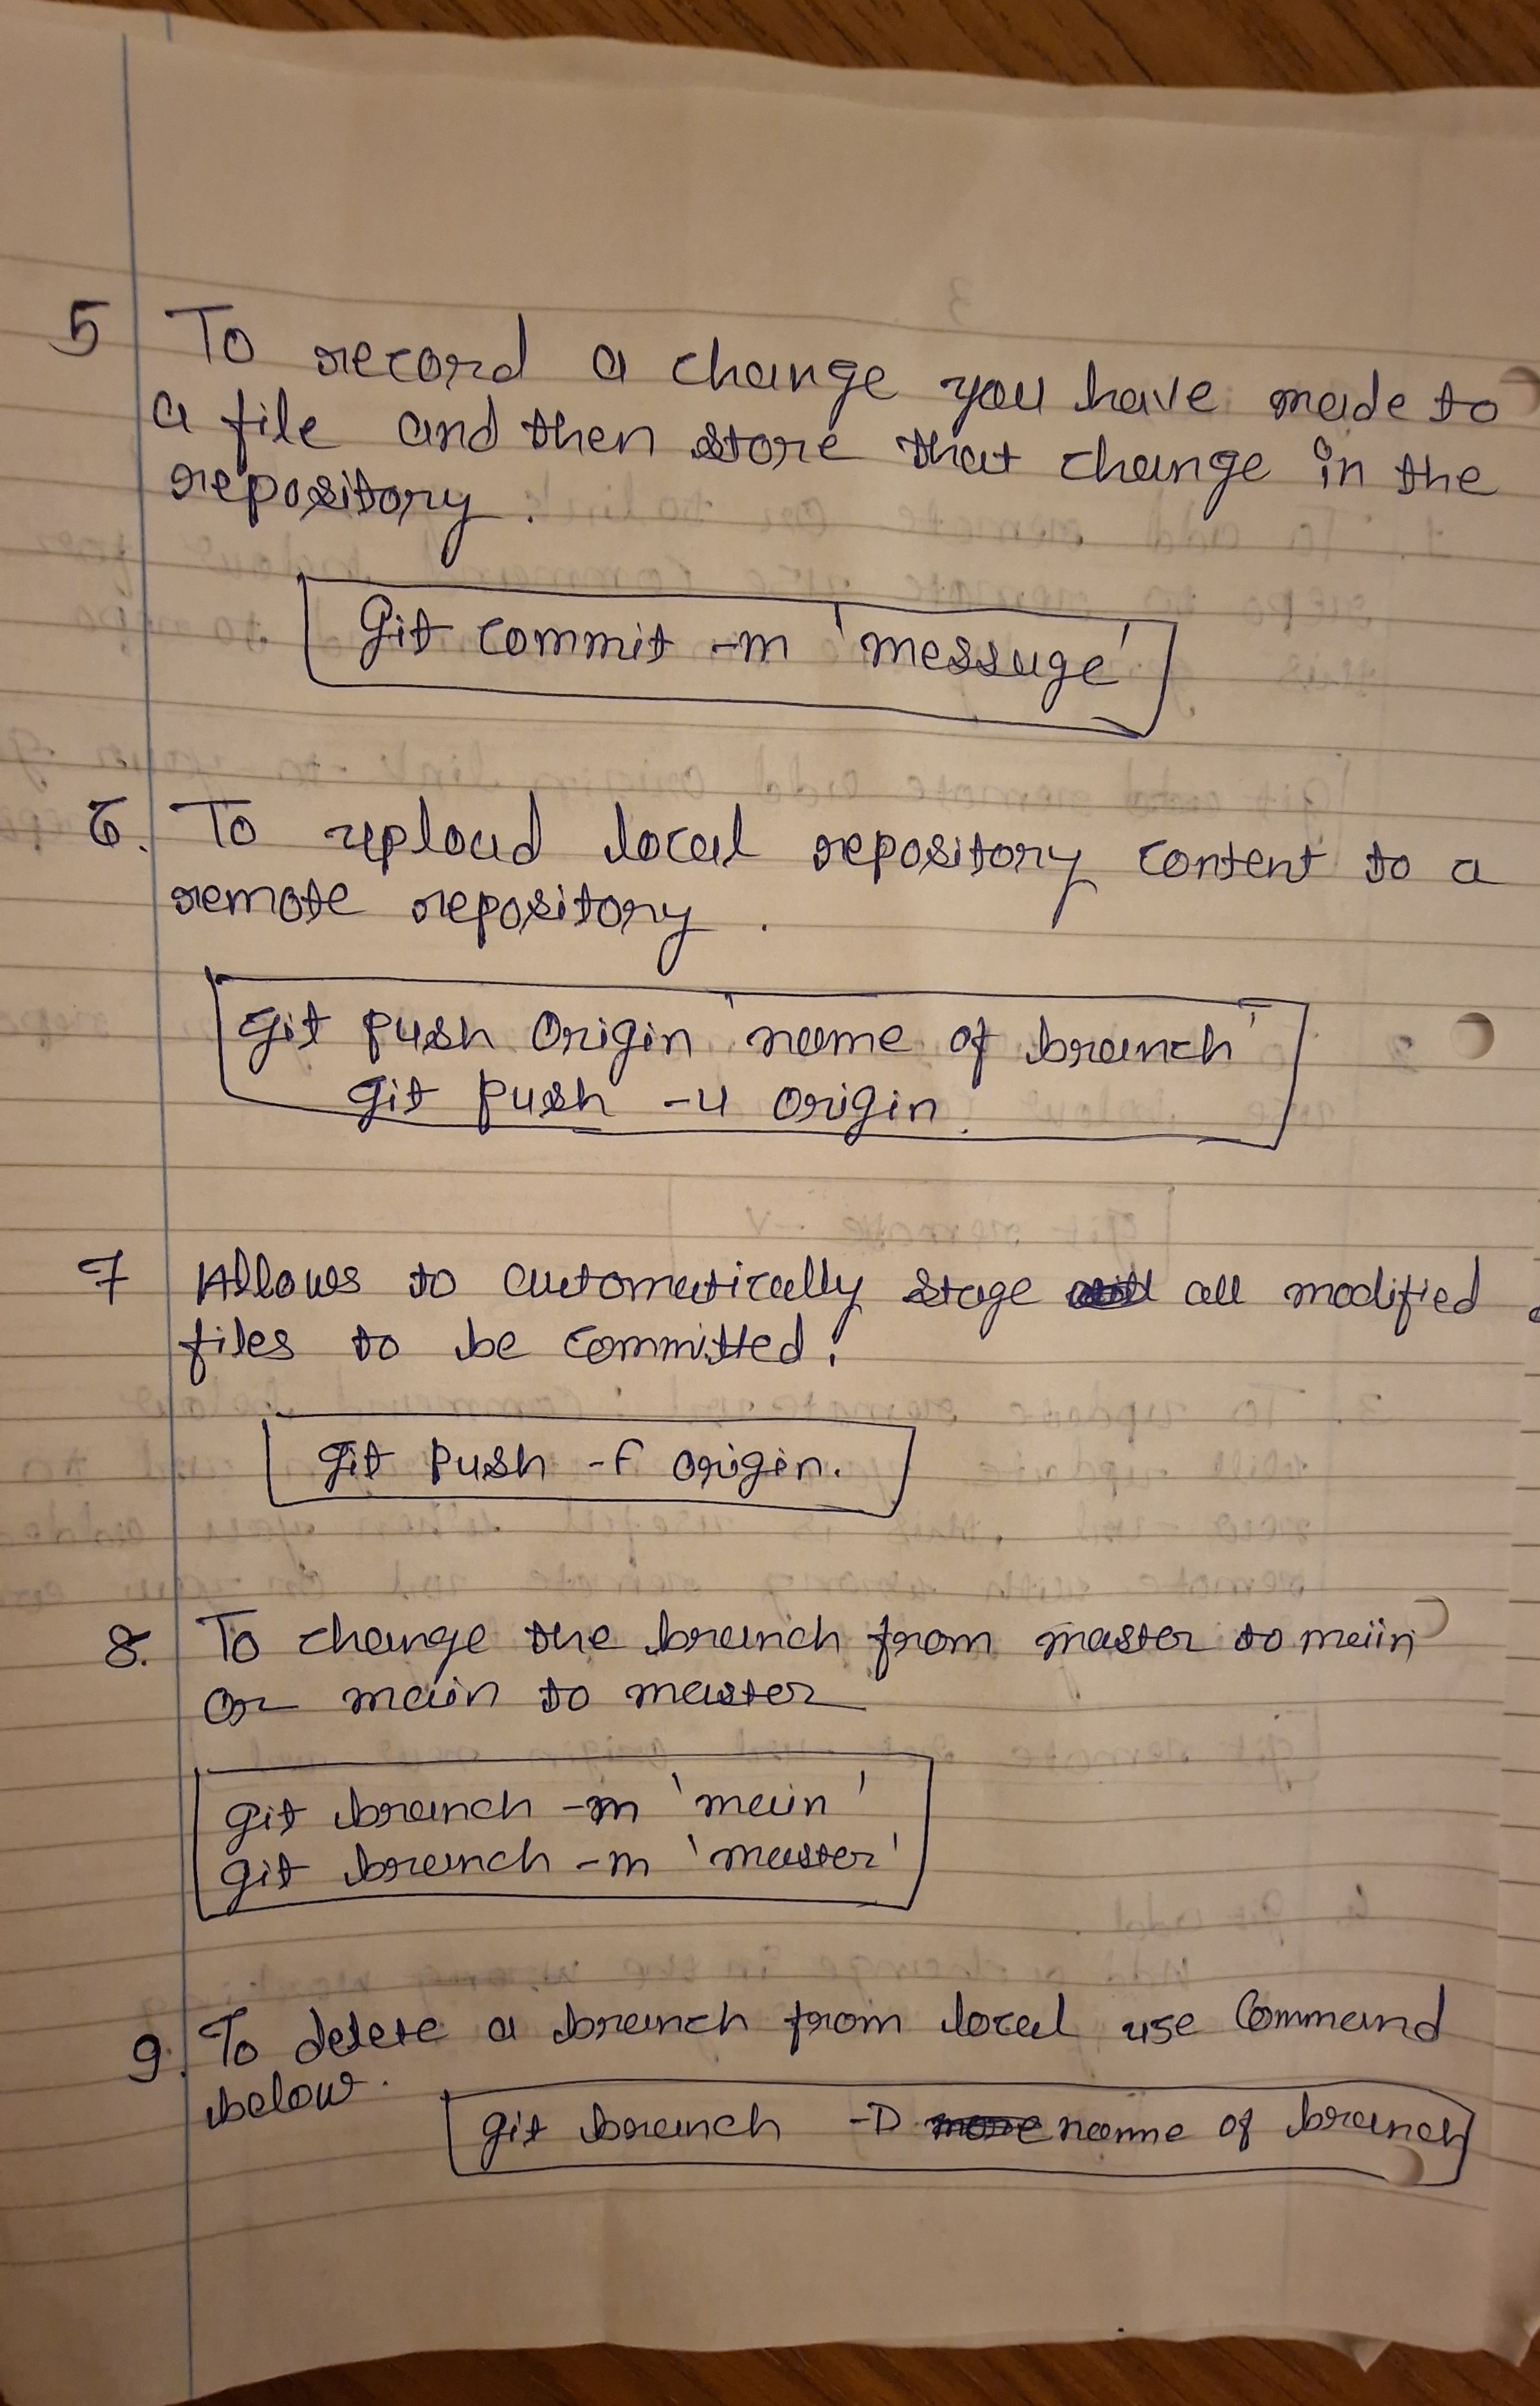 5 To record a change you have made to
a file and then store that change in the
repository.
Git commit -m 'message'
6. To upload local repository content to a
remote repository.
git push origin 'name of branch'
git push -u origin.
7 Allows to automatically stage all modified
files to be committed.
git push -f origin.
8. To change the branch from master to main
or main to master
git branch -m 'main'
git branch -m 'master'
9. To delete a branch from local use Command
below.
git branch -D name of branch